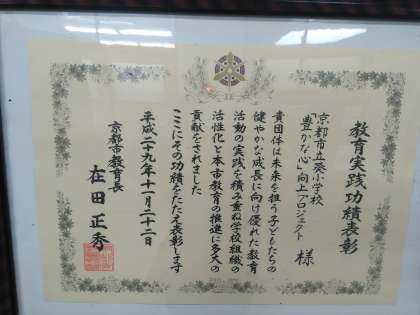 教育実践功績表彰
京都市立葵小学校
「豊かな心」向上プロジェクト 様
貴団体は未来を担う子どもたちの
健やかな成長に向け優れた教育
活動の実践を積み重ね学校組織の
活性化と本市教育の推進に多大の
貢献をされました
ここにその功績をたたえ表彰します
平成二十九年十一月二十二日
京都市教育長
在田正秀